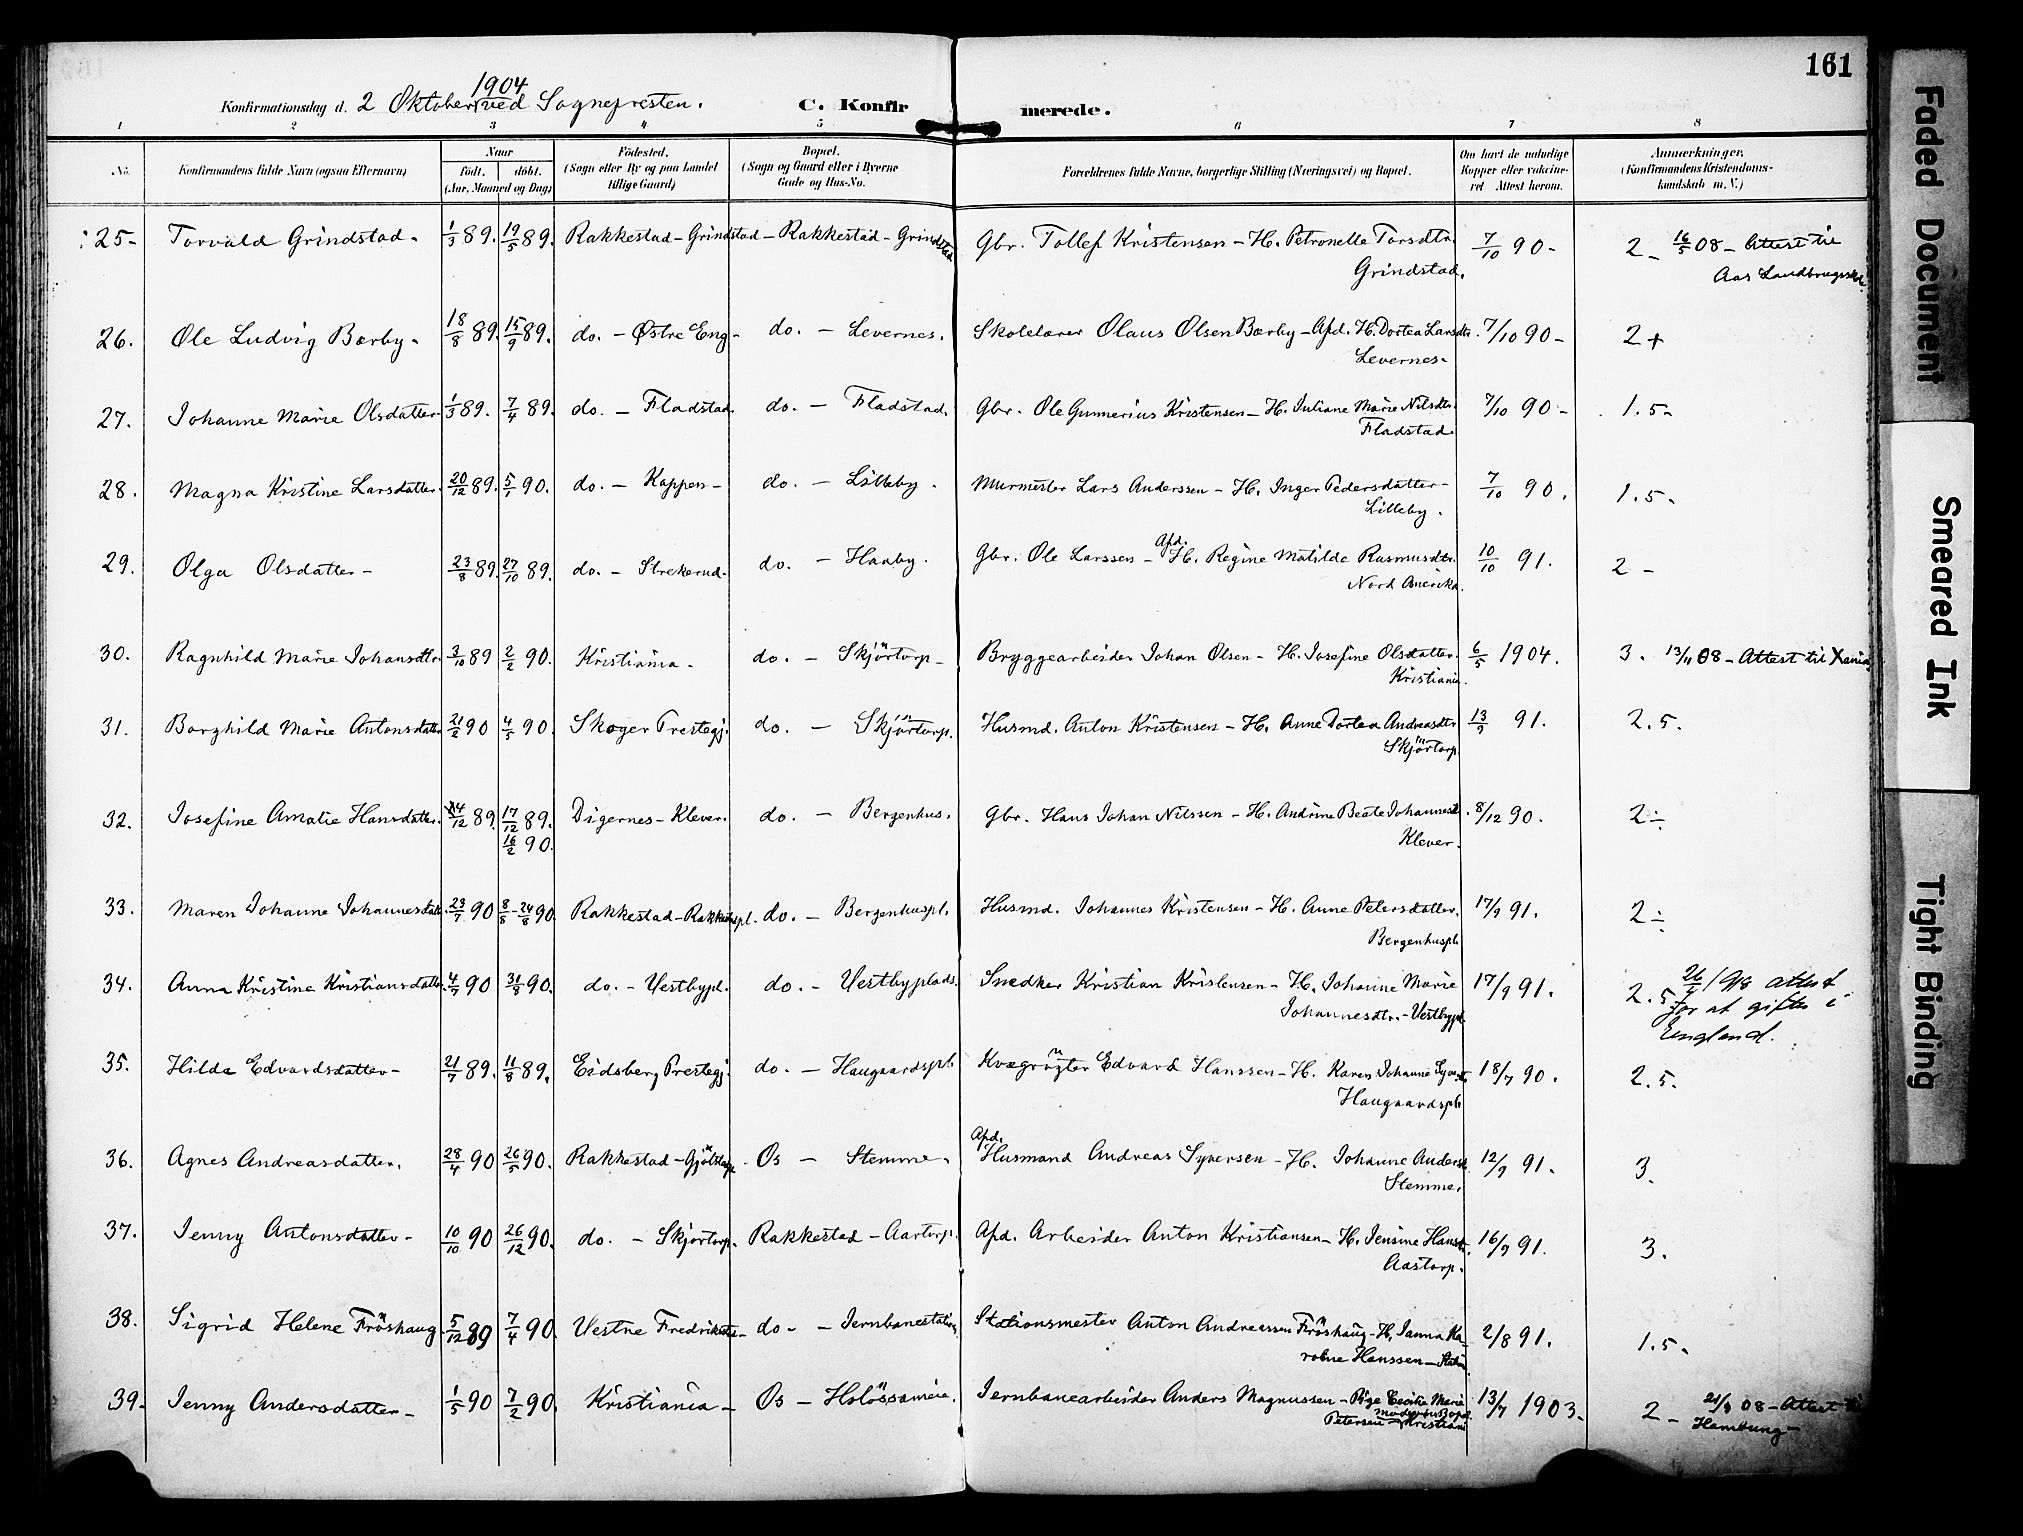 161
Konfirmationsdag d. 2 Oktober 1904 ved Sognepresten. C. Konfirmerede.
1 2 3 4 5 6 7 8
No. Konfirmandens fulde Navn (ogsaa Efternavn) Naar født. døbt. (Aar, Maaned og Dag) Fødested. (Sogn eller By og paa Landet tillige Gaard) Bopæl. (Sogn og Gaard eller i Byerne Gade og Hus-No. Forældrenes fulde Navne, borgerlige Stilling (Næringsvei) og Bopæl. Om havt de naturlige Kopper eller vakcineret Attest herom. Anmerkninger, (Konfirmandens Kristendomskundskab m. V.)
25- Torvald Grindstad. 1/3 89. 19/5 89. Rakkestad - Grindstad - Rakkestad - Grindstad Gbr. Tollef Kristensen - H. Petronelle Torsdtr. 7/10 90 - 2 - 16/5 08 - Attest til
Grindstad. Aas Landbrugsskole
26. Ole Ludvig Bærby. 18/8 89. 15/9 89. do. - Østre Eng - do. - Levernes. Skolelærer Olaus Olsen Bærby - Afd. H. Dortea Larsdtr. 7/10 90 - 2 +
Levernes -
27. Johanne Marie Olsdatter. 1/3 89. 7/4 89. do. - Fladstad. do. - Fladstad. Gbr. Ole Gunnerius Kristensen - H. Juliane Marie Nilsdtr. 7/10 90 - 1.5 -
Fladstad.
28. Magna Kristine Larsdatter. 20/12 89. 5/1 90. do. - Kappen - do. - Lilleby. Murmester Lars Anderssen - H. Inger Pedersdatter - 7/10 90. 1.5 -
Lilleby.
29. Olga Olsdatter - 23/8 89. 27/10 89. do. - Strekerud. do. - Haaby. Gbr. Ole Larssen - Afd. H. Regine Matilde Rasmusdtr. 10/10 91. 2 -
Nord Amerika.
30. Ragnhild Marie Johansdtr. 3/10 89 2/2 90. Kristiania - do. - Skjörtorp - Bryggearbeider Johan Olsen - H. Josefine Olsdatter. 6/5 1904. 3. 13/11 08 - Attest til Xania
Kristiania.
31. Borghild Marie Antonsdatter 21/2 90 4/5 90. Skoger Prestegj. do. - Skjörtorp. Husmd. Anton Kristensen - H. Anne Dortea Andreasdtr 13/9 91. 2.5.
Skjörtorp.
32. Josefine Amalie Hansdatter. 14/12 89. 17/12 89. Digernes - Klever. do. - Bergenhus. Gbr. Hans Johan Nilssen - H. Andrine Beate Johannesd. 8/12 90. 2 ÷
16/2 90. Klever.
33. Maren Johanne Johannesdatter. 23/7 90 8/8 - 24/8 90. Rakkestad - Rakkestadpl. do. - Bergenhuspl. Husmd. Johannes Kristensen - H. Anne Petersdatter. 17/9 91. 2 ÷
Bergenhuspl.
34. Anna Kristine Kristiansdatter. 4/7 90 31/8 90. do. - Vestbypl. do. - Vestbyplads. Snedker Kristian Kristensen - H. Johanne Marie 17/9 91. 2.5. 26/7 1918 attest
Johannesdtr. - Vestbypl. for at giftes i
England.
35. Hilda Edvardsdatter - 21/7 89. 11/8 89. Eidsberg Prestegj. do. - Haugaardspl. Kvægrögter Edvard Hanssen - H. Karen Johanne Syversdtr 18/7 90. 2.5.
Haugaardspl.
36. Agnes Andreasdatter. 28/4 90 26/5 90. Rakkestad - Os - Stemme. Afd. Husmand Andreas Syversen - H. Johanne Andersd. 12/9 91. 3.
Stemme.
37. Jenny Antonsdatter - 10/10 90 26/12 90. do. - Skjörtorp. Rakkestad - Aartorp. Afd. Arbeider Anton Kristiansen - H. Jensine Hansdtr. 16/9 91. 3.
Aastorp.
38. Sigrid Helene Fröshaug. 5/12 89 7/4 90. Vestre Fredrikstad - do - - Jernbanestation Stationsmester Anton Andreassen Fröshaug - H. Janna Ka- 2/8 91. 1.5.
roline Hanssen -
39. Jenny Andersdatter - 1/5 90 7/2 90. Kristiania - Os - Holössameie. Jernbanearbeider Anders Magnussen - Pige Cecilie Marie 13/7 1903. 2 - 21/9 08 - Attest til
Petersen - Kristiania Hamburg -
Faded Document
Smeared Ink
Tight Binding